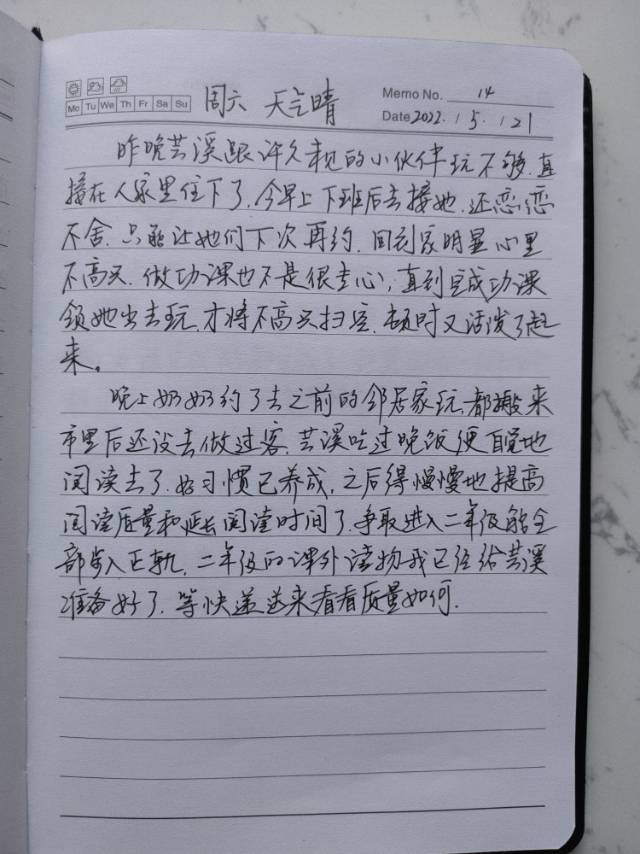 Mo Tu We Th Fr Sa Su
周六 天气晴
Memo No. 14
Date 2022.15.121
昨晚芸溪跟许久未见的小伙伴玩不够,直
接在人家里住下了.今早上下班后去接她.还恋恋
不舍.只能让她们下次再约.回到家明显心里
不高兴.做功课也不是很走心,直到完成功课
领她出去玩,才将不高兴扫空.顿时又活泼了起
来。
晚上奶奶约了去之前的邻居家玩,都搬来
市里后还没去做过客.芸溪吃过晚饭便自觉地
阅读去了.好习惯已养成,之后得慢慢地提高
阅读质量和延长阅读时间了.争取进入二年级能全
部步入正轨.二年级的课外读物我已经给芸溪
准备好了.等快递送来看看质量如何.